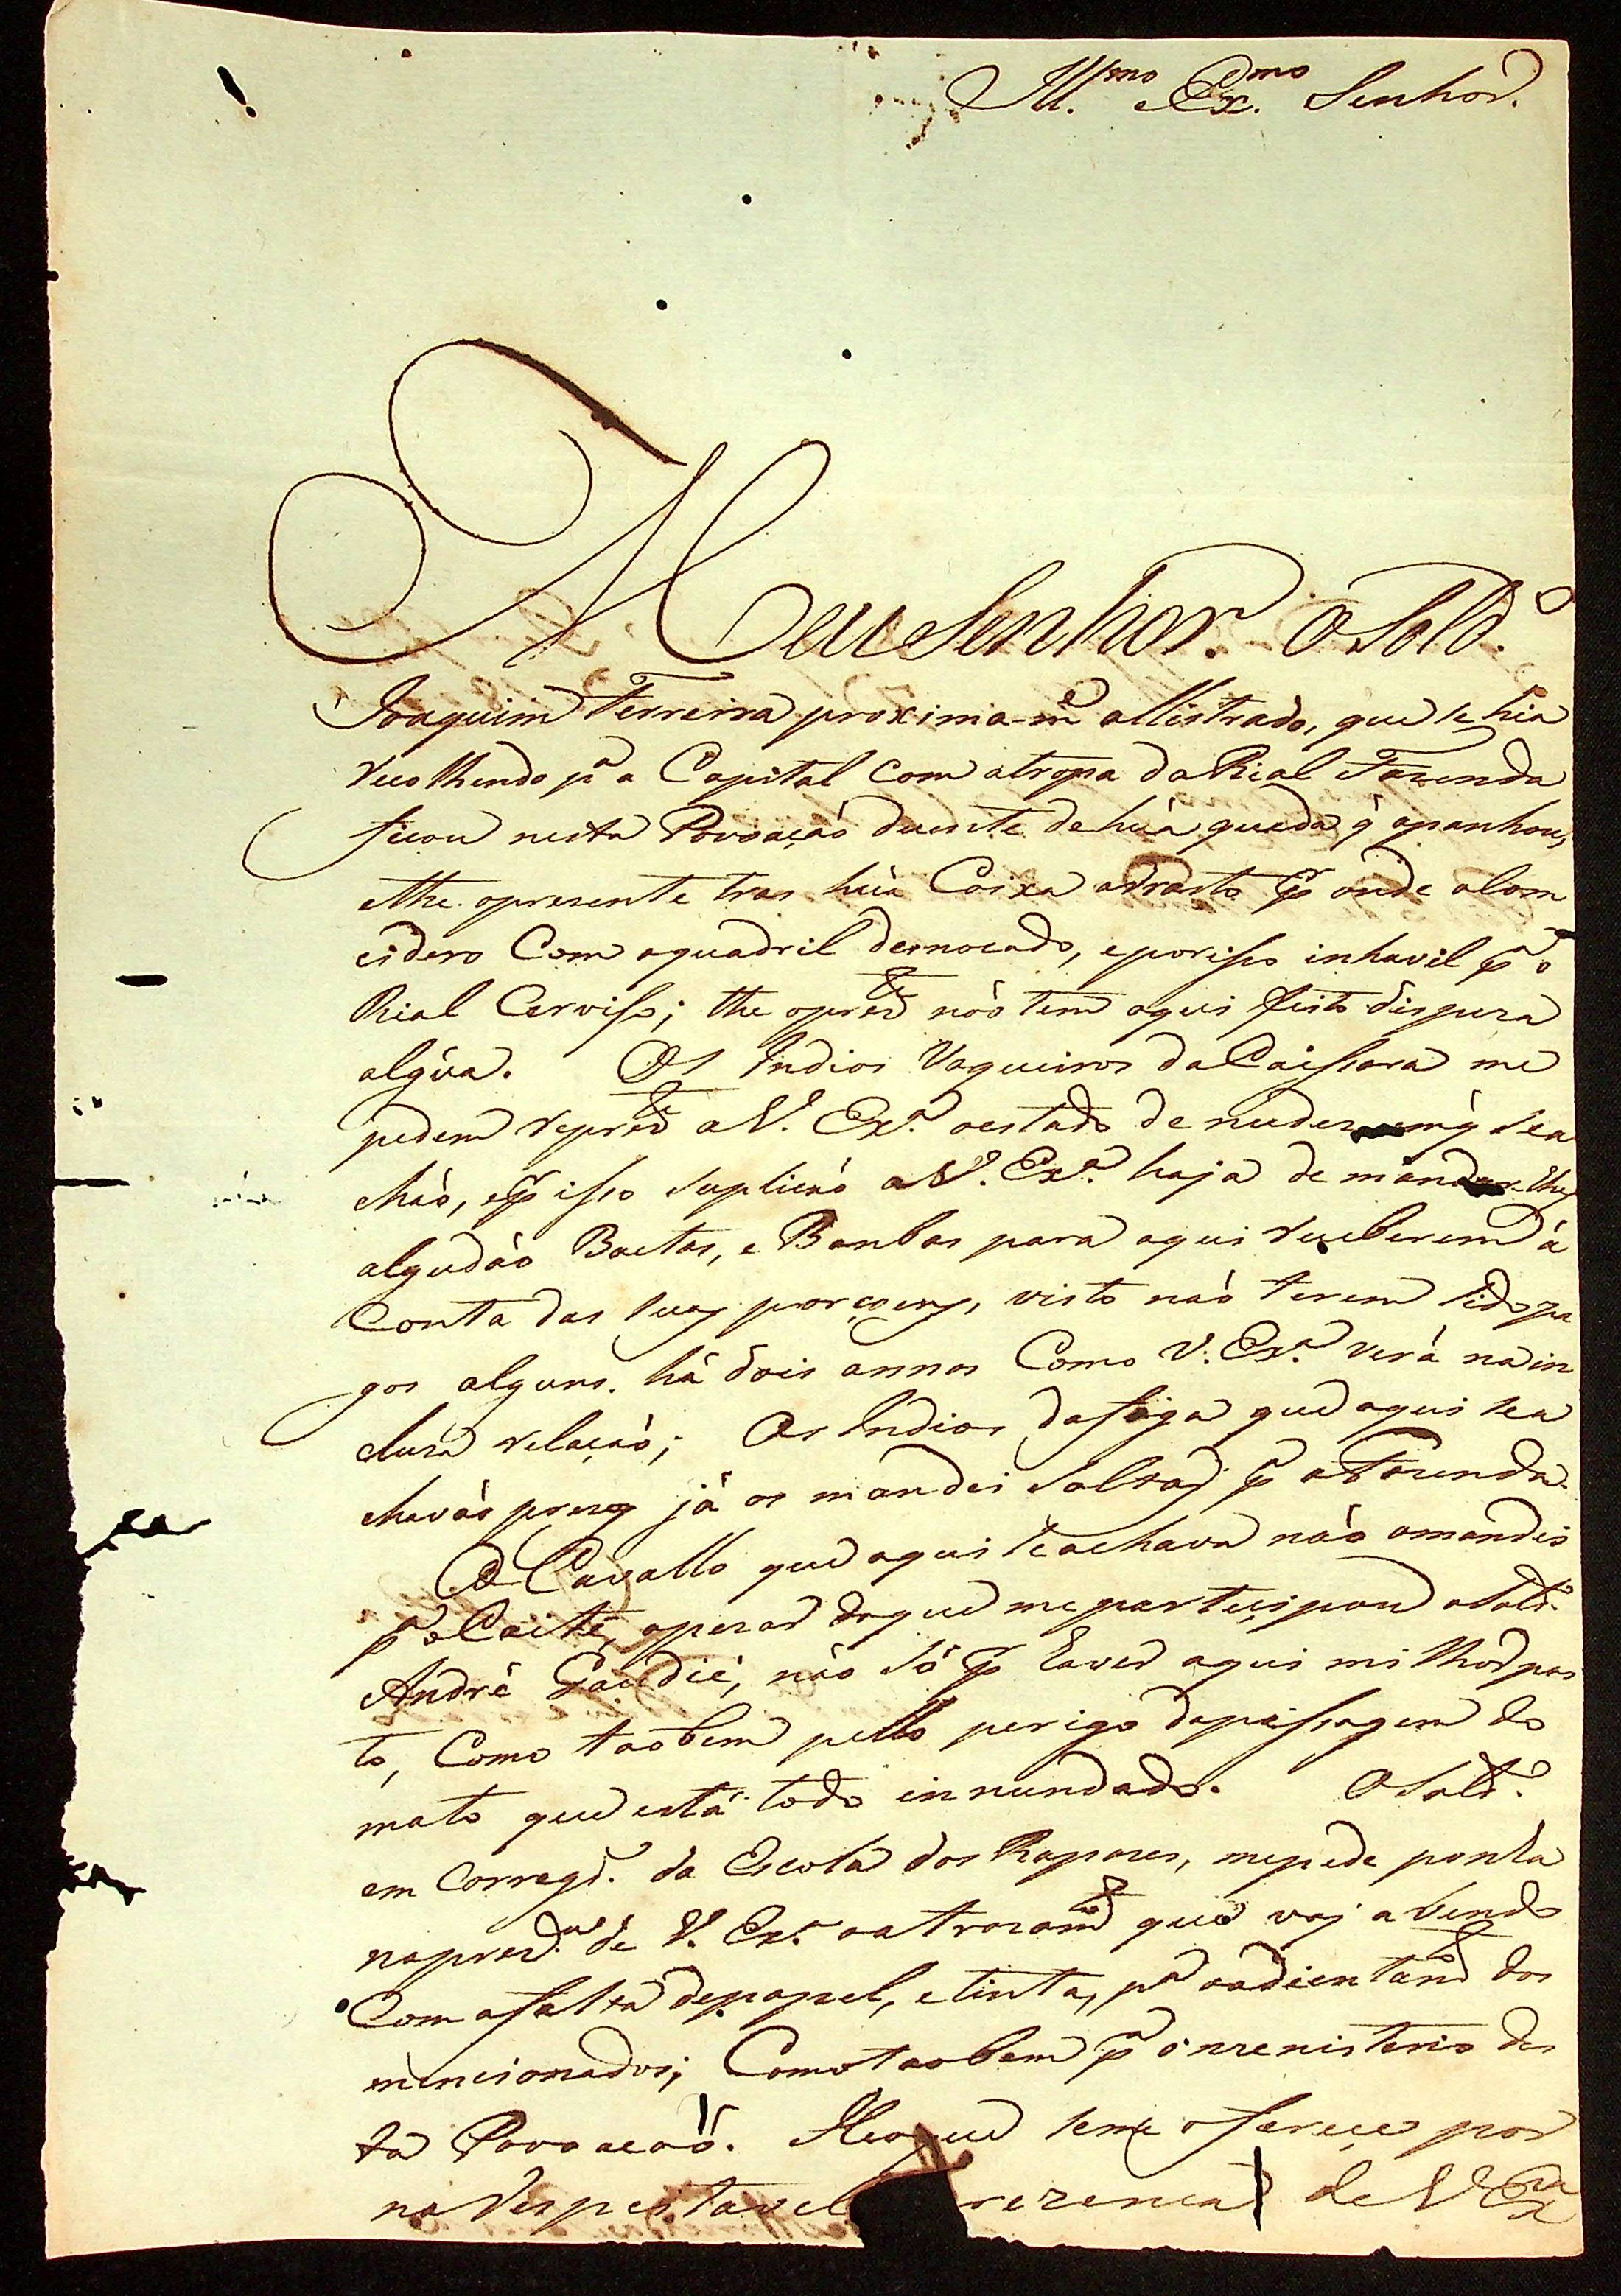 Ill.mo Ex.mo Senhor.
Meu Senhor. O Sold.o
Joaquim Ferreira proxima-m.e allistrado, que se hia
recolhendo p.a a Capital com a tropa da Rial Fazenda
ficou nesta Povoação duente de hũa queda q̃ apanhou,
athe opresente tras hũa Coixa a rasto por onde o con
cidero Com aquadril desnocado, eporisso inhavil p.a o
Rial Cervisso; the opres.e nào tem aqui feito dispeza
algũa. Os Indios Vaqueiros da Caissara me
pedem repres.e a V. Ex.a oestado de nudez em q̃ sea
chaò, epor isso suplicaò a V. Ex.a haja de mandar-lhes
algudaò Baetas, e Banbas para aqui receberem à
Conta das suas porçoens, visto naò terem sido pa
gos alguns. hà dois annos Como V. Ex.a verà na in
cluza relaçaò; Os Indios da fuga que aqui sea
chavaò prezos jà os mandei soltar p.a a Fazenda.
O Cavallo que aqui seachava naò omandei
p.a o Caitè, apezar doque me partecipou o Sold.o
André Gaudiè, nào sò por haver aqui milhor pas
to, Como taobem pello perigo dapassagem do
mato que està todo innundado. O Sold.o
em Carreg.do da Escola dos Rapazes, mepede ponha
napres.a de V. Ex.a oatrozam.to que vai avendo
Com afalta depapel, e tinta, p.a oadientam.to dos
mencionados; Comotaobem p.a o menisterio des
ta Povoaçaò. He oque seme oferece por
na respeitavel rezenca de V Ex.a